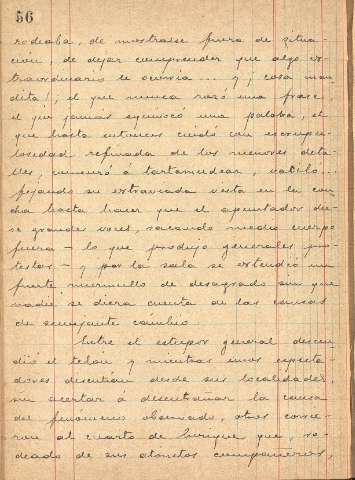 56
rodeaba, de mostrarse fuera de situa-
cion, de dejar comprender que algo ex-
traordinario le ocurria... y ¡cosa mal-
dita!, el que nunca rozó una frase,
el que jamas equivocó una palabra, el
que hasta entonces cuidó con escrupu-
losidad refinada de los menores deta-
lles, comenzó á tartamudear, vaciló...
fijando su extraviada vista en la con-
cha hasta hacer que el apuntador die-
se grandes voces, sacando medio cuerpo
fuera — lo que produjo generales pro-
testas — y por la sala se extendió un
fuerte murmullo de desagrado sin que
nadie se diera cuenta de las causas
de semejante cambio.
Entre el estupor general descen-
dió el telón y mientras unos especta-
dores discutian desde sus localidades,
sin acertar á desentrañar la causa
del fenómeno observado, otros corrie-
ron al cuarto de Enrique que, ro-
deado de sus atónitos compañeros,